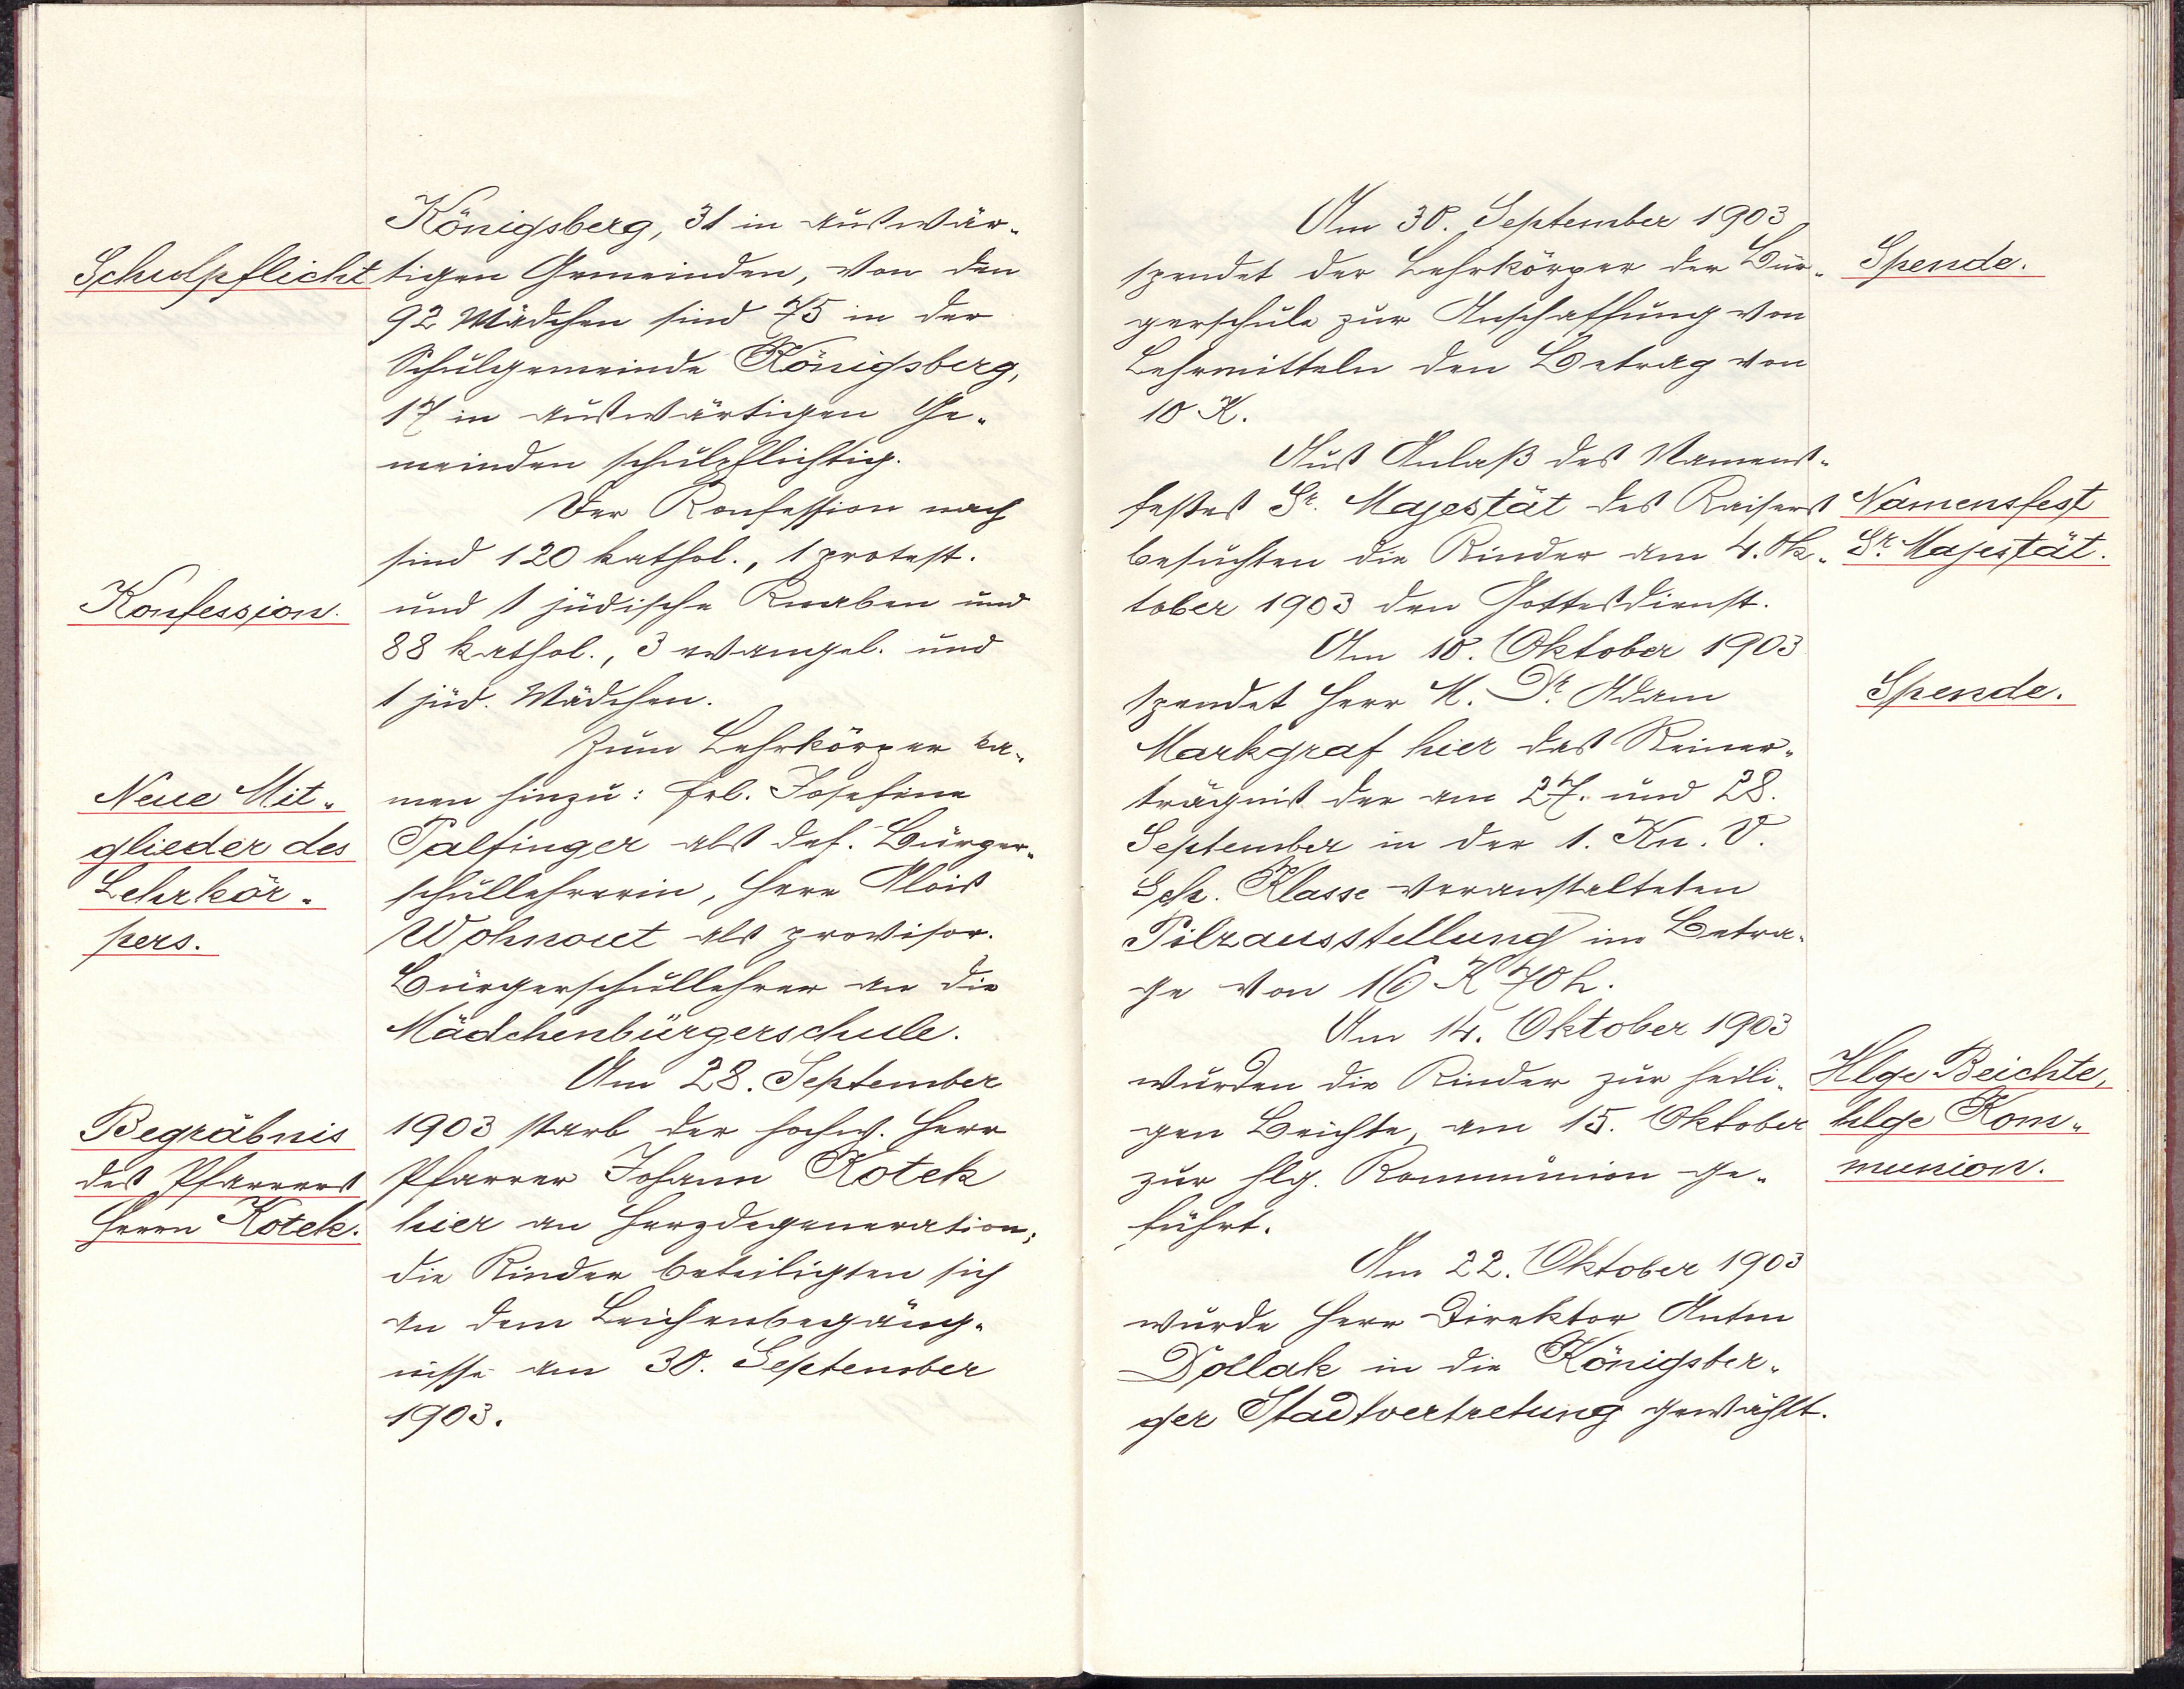 Königsberg, 31 in auswär-
Schulpflicht
tigen Gemeinden, von den
92 Mädchen sind 75 in der
Schulgemeinde Königsberg,
17 in auswärtigen Ge-
meinden schulpflichtig.
Der Konfession nach
sind 120 kathol., 1 protest.
Konfession.
und 1 jüdische Knaben und
88 kathol., 3 evangel. und
1 jüd. Mädchen.
Zum Lehrkörper ka-
Neue Mit-
glieder des
Lehrkör-
pers.
men hinzu: Frl. Josefine
Palfinger als def. Bürger-
schullehrerin, Herr Alois
Wohnout als provisor.
Bürgerschullehrer an die
Mädchenbürgerschule.
Am 28. September
Begräbnis
des Pfarrers
Herrn Kotek.
1903 starb der hochw. Herr
Pfarrer Johann Kotek
hier an Herzdegeneration;
die Kinder beteiligten sich
an dem Leichenbegäng-
nisse am 30. September
1903.
Am 30. September 1903
spendet der Lehrkörper der Bür-
Spende.
gerschule zur Anschaffung von
Lehrmitteln den Betrag von
10 K.
Aus Anlaß des Namens-
festes Sr. Majestät des Kaisers
Namensfest
besuchten die Kinder am 4. Ok-
Sr. Majestät.
tober 1903 den Gottesdienst.
Am 10. Oktober 1903
spendet Herr M. Dr. Adam
Spende.
Markgraf hier das Reiner-
trägnis der am 27. und 28.
September in der 1. Kn. V.
Sch. Klasse veranstalteten
Pilzausstellung im Betra-
ge von 16 K 70 h.
Am 14. Oktober 1903
wurden die Kinder zur heili-
Hlge Beichte,
gen Beichte, am 15. Oktober
hlge Kom-
zur hlg. Kommunion ge-
munion.
führt.
Am 22. Oktober 1903
wurde Herr Direktor Anton
Dollak in die Königsber-
ger Stadtvertretung gewählt.